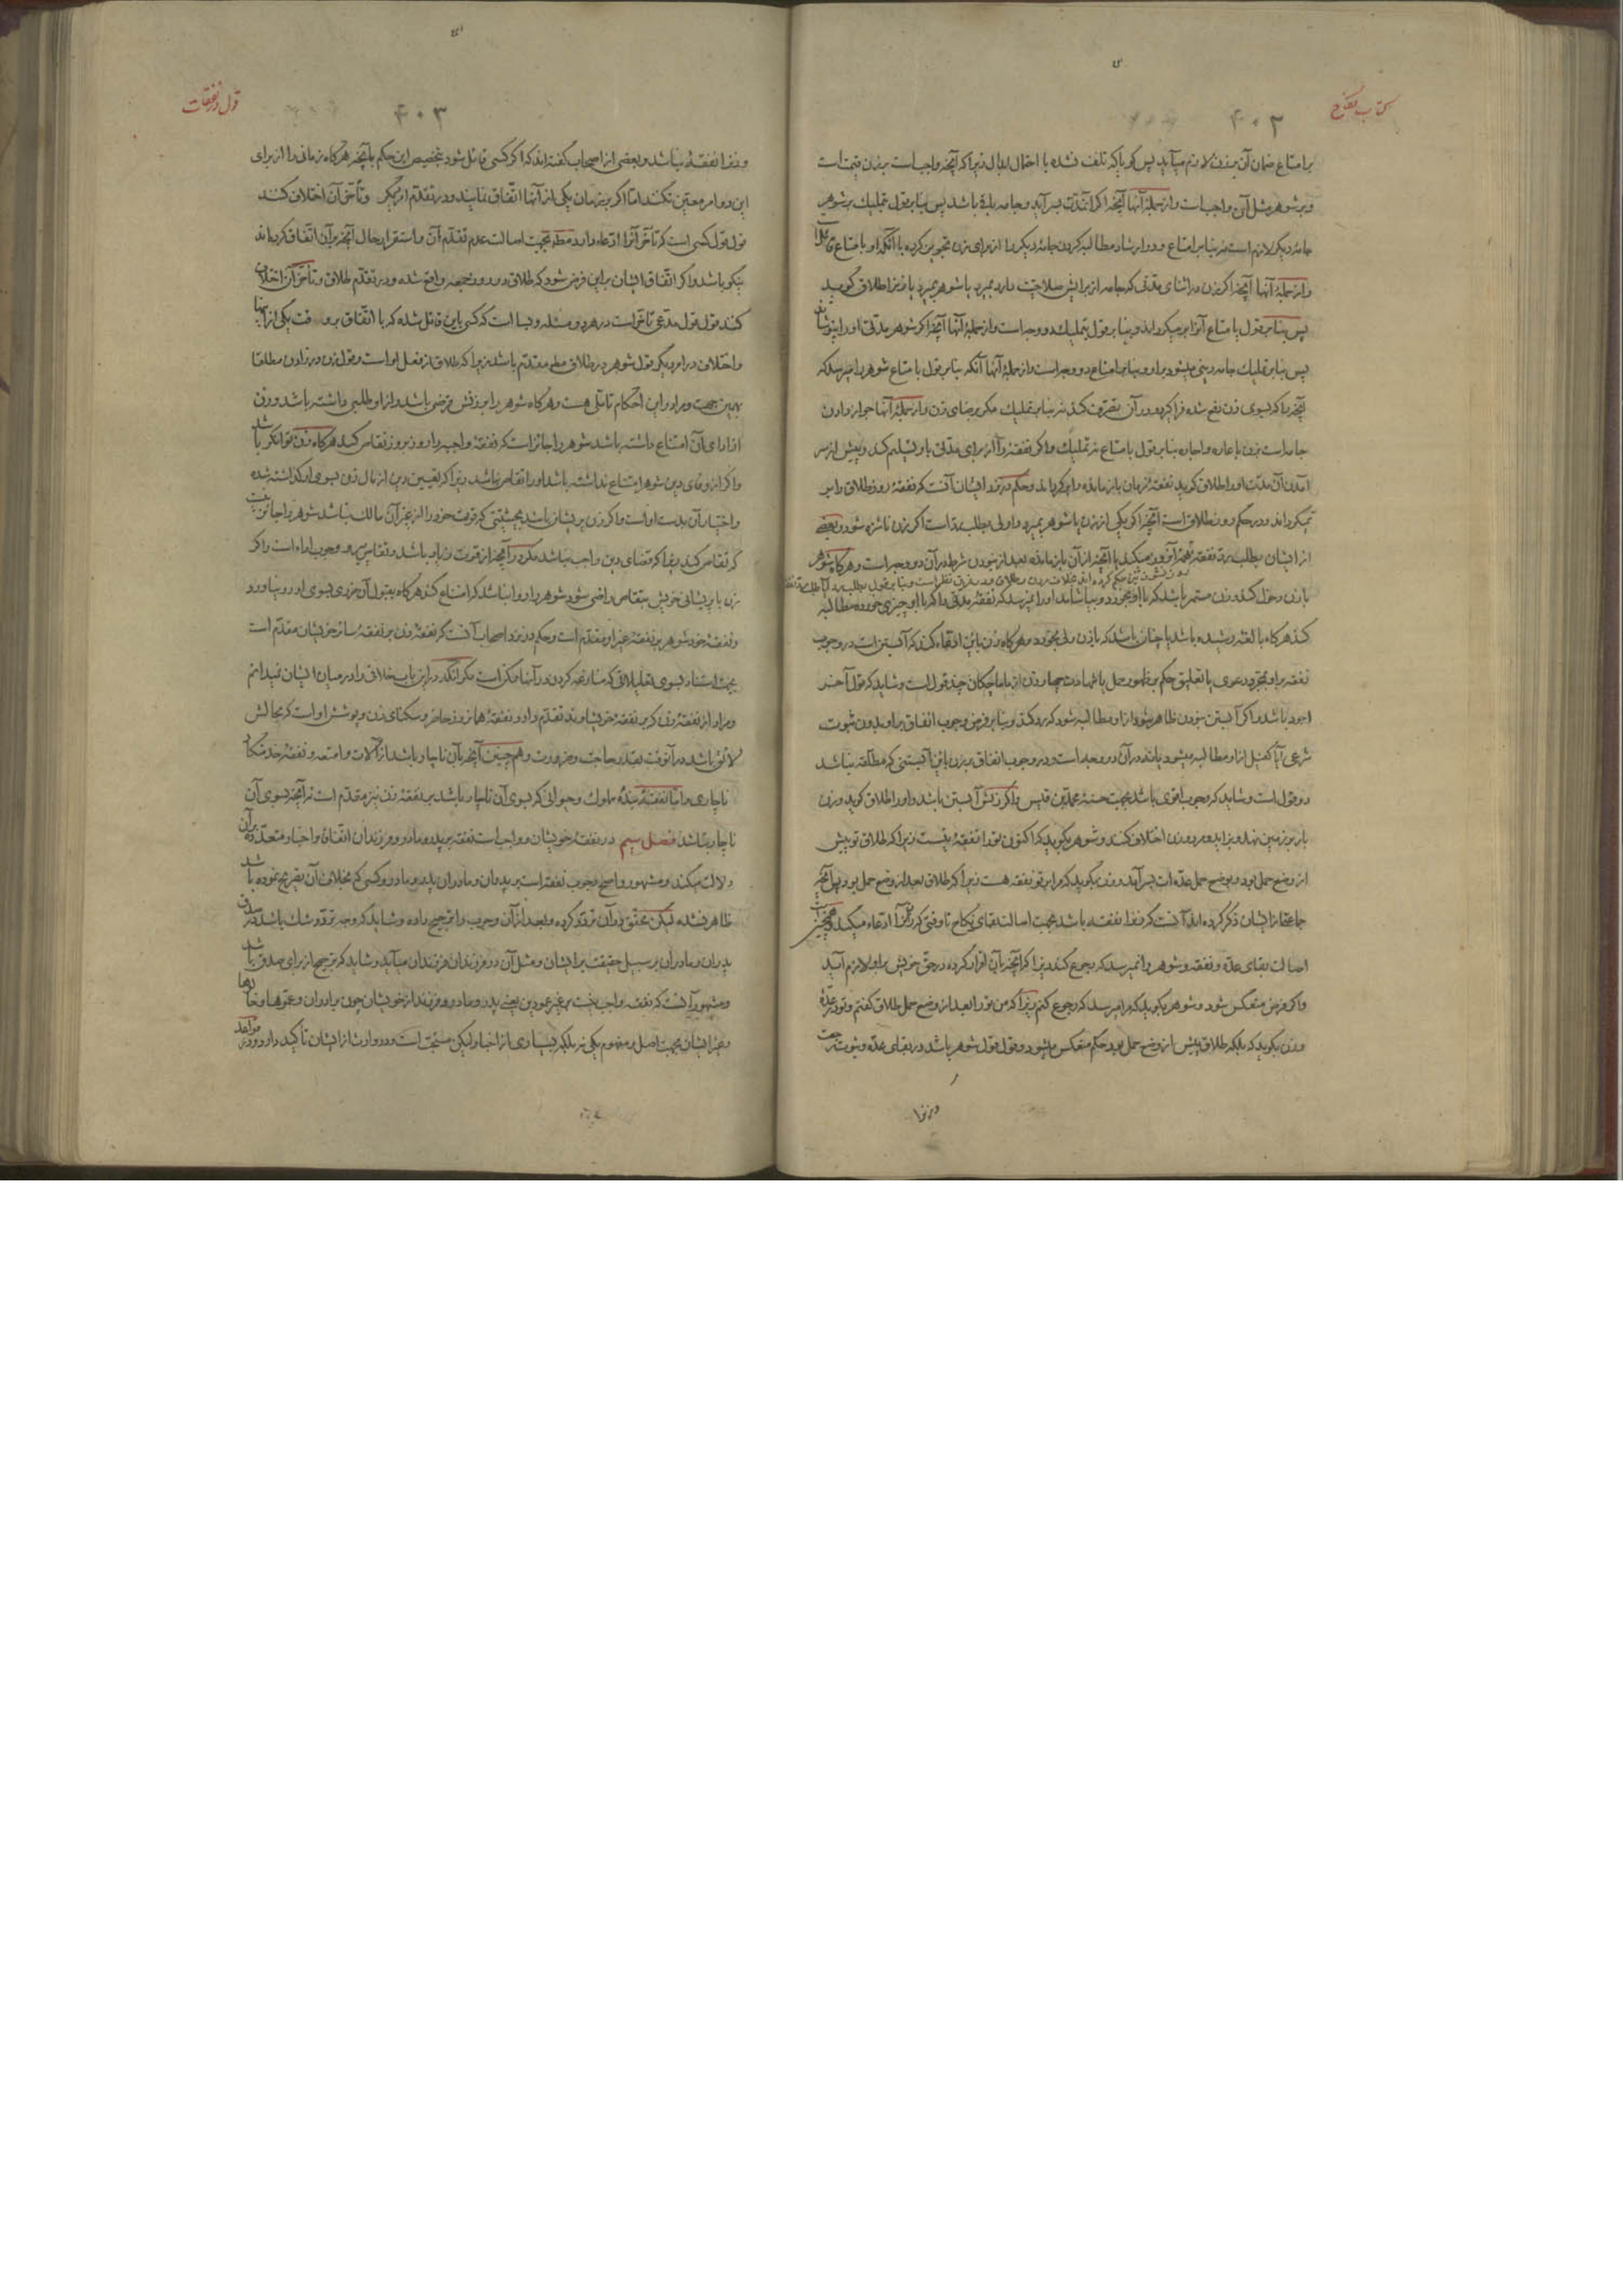 كتاب نكاح
۴۰۲
بامتاع ضمان آن بر زن لازم میآید پس کویا که تلف نشده با احتمال ابدال زیرا که آنچه واجب است بر زن قیمت است
و بر شوهر مثل آن واجب است و از جملهٔ آنها آنچه اکر آنمدت بسر آید و جامه باقی باشد پس بنا بر قول بتملیك بر شوهر
جامهٔ دیکر لازم است نه بنا بر امتاع و در ارشاد مطالبه کردن جامهٔ دیکر را از برای زن تجویز کرده با آنکه او بامتاع قائل
و از جملهٔ آنها آنچه اکر زن در اثنای مدتی که جامه از برایش صلاحیت دارد بمیرد یا شوهر بمیرد یا او را طلاق کوید
پس بنا بر قول بامتاع آنرا بر میکرداند و بنا بر قول بتملیك دو وجه است و از جملهٔ آنها آنچه اکر شوهر مدتی او را بپوشاند
پس بنا بر تملیك جامه دینی میشود بر او و بنا بر امتاع دو وجه است و از جملهٔ آنها آنکه بنا بر قول بامتاع شوهر را میرسد که
آنچه را که بسوی زن دفع شده فرا کیرد و در آن تصرف کند نه بنا بر تملیك مکر برضای زن و از جملهٔ آنها جواز دادن
جامه است بزن باعاره و اجاره بنا بر قول بامتاع نه تملیك و اکر نفقهٔ او را از برای مدتی باو تسلیم کند و پیش از سر
آمدن آن مدت او را طلاق کوید نفقهٔ زمان باز مانده را بر کرداند و حکم در نزد ایشان آنست که نفقهٔ روز طلاق را بر
نمیکرداند و در حکم روز طلاق است آنچه اکر یکی از زن یا شوهر بمیرد و اولی بمطلب رد است اکر زن ناشزه شود و بعضی
از ایشان بطلب رد نفقه تتمهٔ آنروز میکند یا آنچه از آن باز مانده بعد از نبودن شرط در آن دو وجه است و هر کاه شوهر
با زن دخول کند و زن مستمر باشد که با او بخورد و بیاشامد او را نمیرسد که نفقهٔ مدتی را که با او چیزی خورده مطالبه
کند هر کاه بالغه رشیده باشد یا چنان باشد که باذن ولی بخورد و هر کاه زن باین ادعاء کند که آبستن است در وجوب
نفقه بر او بمجرد دعوی یا تعلیق حکم بر ظهور حمل یا شهادت چهار زن از ماماچکان چند قول است و شاید که قول آخر
اجود باشد و اکر آبستن نبودن ظاهر شود از او مطالبه شود که رد کند و بنا بر فرض وجوب انفاق بر او بدون ثبوت
شرعی آیا کفیل از او مطالبه میشود یا نه در آن دو وجه است و در وجوب انفاق بر زن باین آبستنی که مطلقه نباشد
دو قول است و شاید که وجوب اقوی باشد بجهت حسنهٔ محمد بن قیس و اکر زنش آبستن باشد و او را طلاق کوید و زن
بار بر زمین نهد و بزاید و مرد و زن اختلاف کنند و شوهر بکوید که اکنون تو را نفقهٔ نیست زیرا که طلاق تو پیش
از وضع حمل بود و بوضع حمل عدّه ات بسر آمد و زن بکوید که مرا بر تو نفقه هست زیرا که طلاق بعد از وضع حمل بود پس آنچه
جماعتی از ایشان ذکر کرده اند آنست که زنرا نفقه باشد بجهت اصالت بقای نکاح تا وقتی که زن آنرا ادعاء میکند و همچنین
اصالت بقای عدّه و نفقه و شوهر را نمیرسد که رجوع کند زیرا که آنچه بآن اقرار کرده در حق خویش بر او لازم آید
و اکر فرض منعکس شود و شوهر بکوید که مرا میرسد که رجوع کنم زیرا که من تو را بعد از وضع حمل طلاق کفتم و تو در عدّهٔ
و زن بکوید که بلکه طلاق پیش از وضع حمل بود حکم منعکس میشود و قول قول شوهر باشد در بقای عدّه و ثبوت رجعت
و زنرا
قول در نفقات
۴۰۳
و زنرا نفقهٔ نباشد و بعضی از اصحاب کفته اند که اکر کسی قائل شود بتخصیص این حکم بآنچه هر کاه زمانی را از برای
این دو امر معین نکنند اما اکر بر زمان یکی از آنها اتفاق نمایند و در تقدّم امر دیکر و تأخر آن اختلاف کنند
قول قول کسی است که تأخر آنرا ادعاء دارد مطلقا بجهت اصالت عدم تقدّم آن و استقرار حال آنچه بر آن اتفاق کرده اند
نیکو باشد و اکر اتفاق ایشان بر این فرض شود که طلاق در روز جمعه واقع شده و در تقدّم طلاق و تأخر آن اختلاف
کنند قول قول مدعی تأخر است در هر دو مسئله و بسا است که کسی باین قائل شده که با اتفاق بر وقت یکی از آنها
و اختلاف در امر دیکر قول شوهر در طلاق مطلقا مقدّم باشد زیرا که طلاق از فعل او است و قول زن در زادن مطلقا
بهمین جهت و مرا در این احکام تأملی هست و هر کاه شوهر را بر زنش قرض باشد و از او طلبی داشته باشد و زن
از ادای آن امتناع داشته باشد شوهر را جائز است که نفقهٔ واجبه را روز بروز تقاص کند هر کاه زن توانکر باشد
و اکر از وفای دین شوهر امتناع نداشته باشد او را تقاص نباشد زیرا که تعیین دین از مال زن بسوی او کذاشته شده
و اختیار آن بدست او است و اکر زن پریشان باشد بحیثیتی که قوت خود را از غیر آن مالك نباشد شوهر را جائز نیست
که تقاص کند زیرا که قضای دین واجب نباشد مکر در آنچه از قوت زیاد باشد و تقاص پیرو وجوب اداء است و اکر
زن با پریشانی خویش بتقاص راضی شود شوهر را روا نباشد که امتناع کند هر کاه بقبول آن ضرری بسوی او رو نیاورد
و نفقهٔ خود شوهر بر نفقهٔ غیر او مقدّم است و حکم در نزد اصحاب آنست که نفقهٔ زن بر نفقهٔ سائر خویشان مقدّم است
بجهت استناد بسوی تعلیلاتی که مناقشه کردن در آنها ممکن است مکر آنکه در این باب خلافی را در میان ایشان نمیدانم
و مراد از نفقهٔ زن که بر نفقهٔ خویشاوند تقدّم دارد نفقهٔ همان روز حاضر و سکنای زن و پوشش او است که بحالش
لائق باشد در آنوقت بقدر حاجت و ضرورت و هم چنین آنچه بآن ناچار باشد از آلات و امتعه و نفقهٔ خدمتکار
ناچاری و اما نفقهٔ بندهٔ مملوك و حیوانی که بسوی آن ناچار باشد بر نفقهٔ زن نیز مقدّم است نه آنچه بسوی آن
ناچار نباشد فصل سیم در نفقهٔ خویشان و واجب است نفقه بر پدر و مادر و فرزندان اتفاقا و اخبار متعدّده بر آن
دلالت میکند و مشهور و اصح وجوب نفقه است بر پدران و مادران پدر و مادر و کسی که بخلاف آن تصریح نموده باشد
ظاهر نشده لیکن محقق در آن تردّد کرده و بعد از آن وجوب را ترجیح داده و شاید که وجه تردّد شك باشد در صدق
پدران و مادران بر سبیل حقیقت بر ایشان و مثل آن در فرزندان فرزندان میآید و شاید که ترجیح از برای صدق باشد
و مشهور آنست که نفقه واجب نیست بر غیر عمودین یعنی پدر و مادر و فرزند از خویشان چون برادران و عموها و خالوها
و غیر ایشان بجهت اصل و مفهوم یکی نه بلکه بسیاری از اخبار لیکن مستحب است و در وارث از ایشان تأکید دارد و در